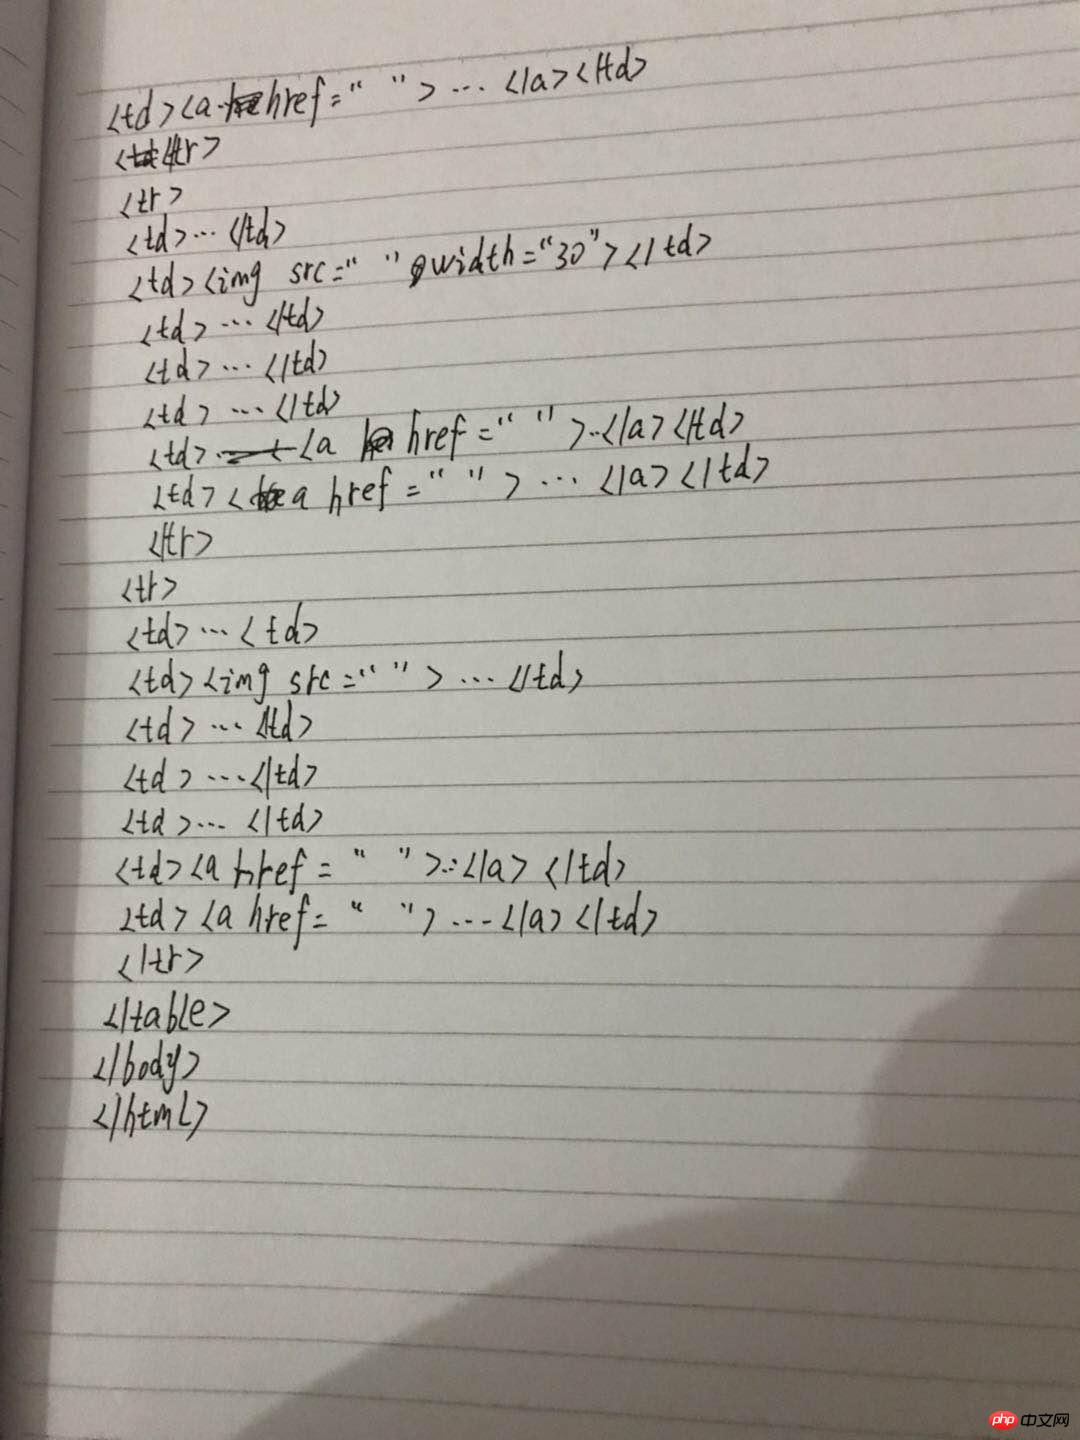 <td><a href=“ ”>...</a></td>
</tr>
<tr>
<td>...</td>
<td><img src=“ ” width=“30”></td>
<td>...</td>
<td>...</td>
<td>...</td>
<td><a href=“ ”>..</a></td>
<td><a href=“ ”>...</a></td>
</tr>
<tr>
<td>...<td>
<td><img src=“ ”>...</td>
<td>...</td>
<td>...</td>
<td>...</td>
<td><a href=“ ”>...</a></td>
<td><a href=“ ”>...</a></td>
</tr>
</table>
</body>
</html>
php 中文网